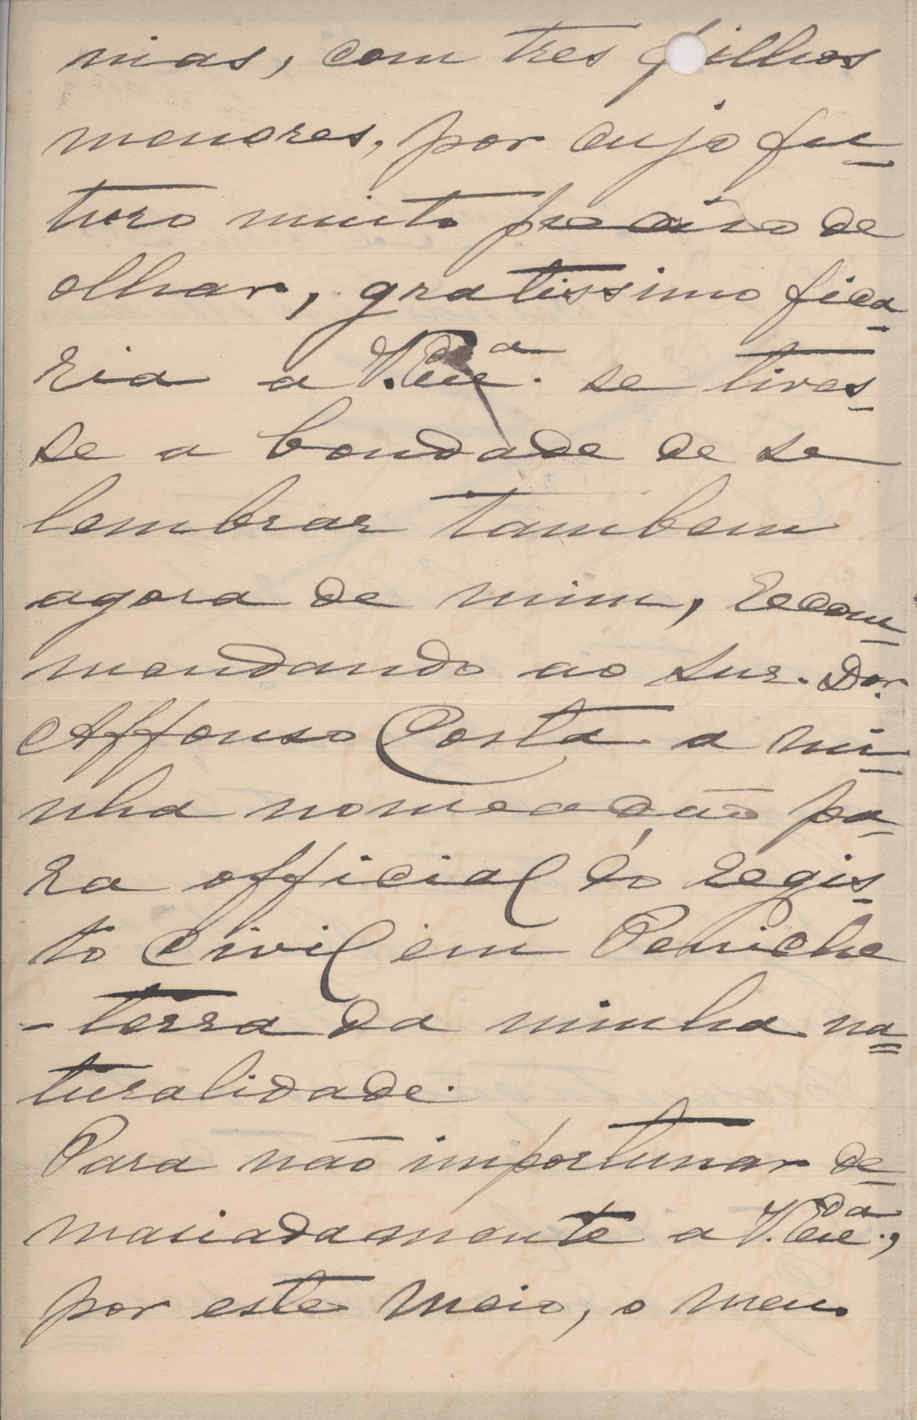 nias, com tres filhos
menores, por cujo fu-
turo muito preciso de
olhar, gratissimo fica-
ria a V. Exª. se tives-
se a bondade de se
lembrar tambem
agora de mim, recom-
mendando ao Snr. Dor.
Affonso Costa a mi-
nha nomeação pa-
ra official do regis-
to civil em Peniche
- terra da minha na=
turalidade.
Para não importunar de-
masiadamente a V. Exª.,
por este meio, o meu